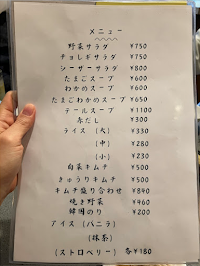 メニュー
野菜サラダ ¥750
チョレギサラダ ¥750
シーザーサラダ ¥800
たまごスープ ¥600
わかめスープ ¥600
たまごわかめスープ ¥650
テールスープ ¥1100
赤だし ¥300
ライス (大) ¥330
(中) ¥280
(小) ¥230
白菜キムチ ¥500
きゅうりキムチ ¥500
キムチ盛り合わせ ¥890
焼き野菜 ¥960
韓国のり ¥200
アイス (バニラ)
(抹茶)
(ストロベリー) 各¥180